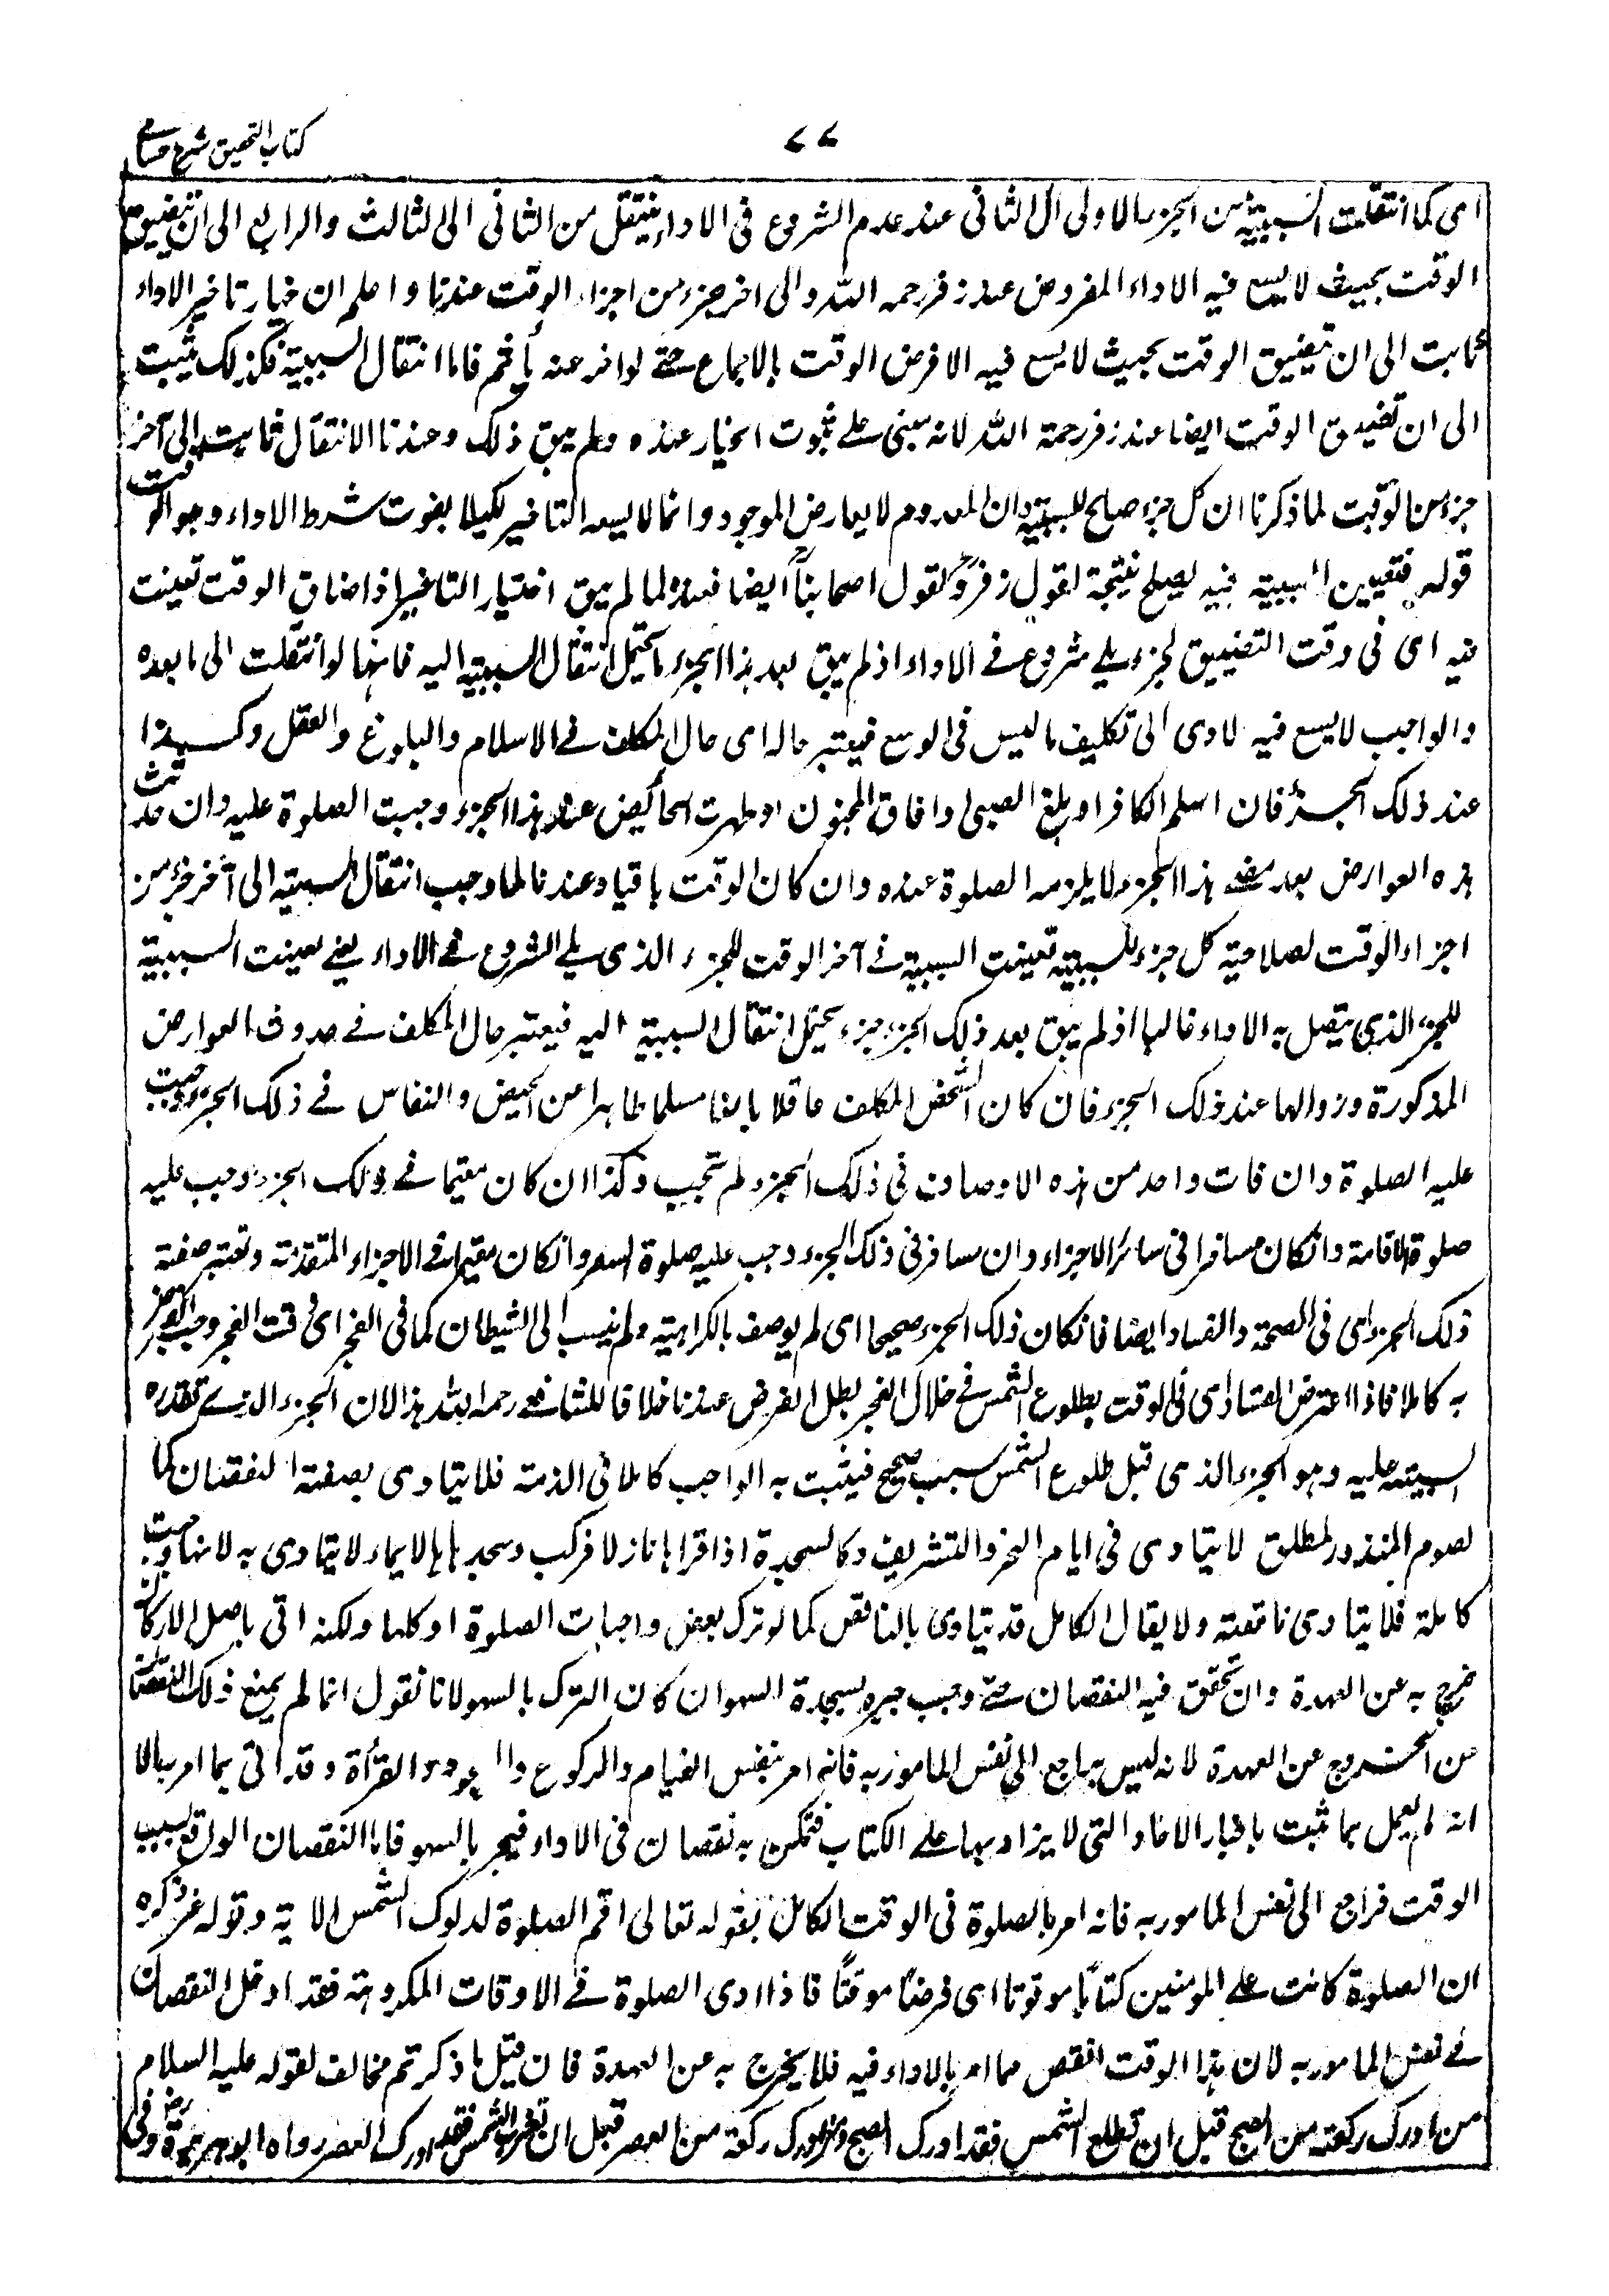 كتاب التحقيق شرح حسامي
٧٧
اى كما انتقلت السببية من الجزء الاولى الى الثانى عند عدم الشروع فى الاداء ينتقل من الثانى الى الثالث والرابع الى ان يتضيق
الوقت بحيث لا يسع فيه الاداء المفروض عند زفر رحمه الله والى اخر جزء من اجزاء الوقت عندنا واعلم ان خيار تاخير الاداء
ثابت الى ان يتضيق الوقت بحيث لا يسع فيه الا فرض الوقت بالاجماع حتى لو اخر عنه يأثم فاما انتقال السببية فكذلك يثبت
الى ان تضيق الوقت ايضا عند زفر رحمة الله لانه مبنى على ثبوت الخيار عنده ولم يبق ذلك وعندنا الانتقال ثابت الى آخر
جزء من الوقت لما ذكرنا ان كل جزء صالح للسببية وان المعدوم لا يعارض الموجود وانما لا يسعه التاخير لكيلا يفوت شرط الاداء وهو الوقت
قوله فتعيين السببية فيه يصلح نتيجة لقول زفر ولقول اصحابنا ايضا فعنده لما لم يبق اختيار التاخير اذا ضاق الوقت تعينت
فيه اى فى وقت التضييق لجزء يلى شروع فى الاداء اذ لم يبق بعد هذا الجزء ما يحتمل انتقال السببية اليه فانها لو انتقلت الى ما بعده
والواجب لا يسع فيه لادى الى تكليف ما ليس فى الوسع فيعتبر حاله اى حال المكلف فى الاسلام والبلوغ والعقل وكسيذا
عند ذلك الجزء فان اسلم الكافر او بلغ الصبى وافاق المجنون او طهرت الحائض عند هذا الجزء وجبت الصلوة عليه وان حدثت
هذه العوارض بعد مضى هذا الجزء لا يلزمه الصلوة عنده وان كان الوقت باقيا وعندنا لما وجب انتقال السببية الى آخر جزء من
اجزاء الوقت لصلاحية كل جزء للسببية تعينت السببية فى آخر الوقت للجزء الذى يلى الشروع فى الاداء يعنى تعينت السببية
للجزء الذى يتصل به الاداء غالبا اذ لم يبق بعد ذلك الجزء جزء يحتمل انتقال السببية اليه فيعتبر حال المكلف فى حدوث العوارض
المذكورة وزوالها عند ذلك الجزء فان كان الشخص المكلف عاقلا بالغا مسلما طاهرا عن الحيض والنفاس فى ذلك الجزء وجبت
عليه الصلوة وان فات واحد من هذه الاوصاف فى ذلك الجزء لم تجب وكذا ان كان مقيما فى ذلك الجزء وجب عليه
صلوة الاقامة وانكان مسافرا فى سائر الاجزاء وان سافر فى ذلك الجزء وجب عليه صلوة السفر وانكان مقيما فى الاجزاء المتقدمة وتعتبر صفة
ذلك الجزء اى فى الصحة والفساد ايضا فانكان ذلك الجزء صحيحا اى لم يوصف بالكراهية ولم ينسب الى الشيطان كما فى الفجر اى فى وقت الفجر وجب الفرض
به كاملا فاذا اعترض الفساد اى فى الوقت بطلوع الشمس فى خلال الفجر بطل الفرض عندنا خلافا للشافعى رحمه الله هذا لان الجزء الذى تقدره
السببية عليه وهو الجزء الذى قبل طلوع الشمس سبب صحيح فيثبت به الواجب كاملا فى الذمة فلا يتادى بصفة النقصان كما
لصوم المنذور المطلق لا يتادى فى ايام النحر والتشريق وكالسجدة اذا قراها نازلا فركب وسجدها بالايماء لا يتادى به لانها وجبت
كاملة فلا يتادى ناقصة ولا يقال الكامل قد يتادى بالناقص كما لو ترك بعض واجبات الصلوة او كلها ولكنه اتى باصل الاركان
خرج به عن العهدة وان تحقق فيه النقصان حتى وجب جبره بسجدة السهو ان كان الترك بالسهو لانا نقول انما لم يمنع ذلك النقصان
من الخروج عن العهدة لانه ليس براجع الى نفس المامور به فانه امر بنفس القيام والركوع والسجود والقرأة وقد اتى بما امر به الا
انه لم يعمل بما ثبت باخبار الاحاد التى لا يزاد بها على الكتاب فتمكن به نقصان فى الاداء فيجبر بالسهو فاما النقصان الواقع بسبب
الوقت فراجع الى نفس المامور به فانه امر بالصلوة فى الوقت الكامل بقوله تعالى اقم الصلوة لدلوك الشمس الاية وقوله عز ذكره
ان الصلوة كانت على المومنين كتابًا موقوتا اى فرضًا موقتًا فاذا ادى الصلوة فى الاوقات المكروهة فقد ادخل النقصان
فى نفس المامور به لان هذا الوقت انقص مما امر بالاداء فيه فلا يخرج به عن العهدة فان قيل ما ذكرتم مخالف لقوله عليه السلام
من ادرك ركعة من الصبح قبل ان تطلع الشمس فقد ادرك الصبح ومن ادرك ركعة من العصر قبل ان تغرب الشمس فقد ادرك العصر رواه ابو هريرة رض وفى